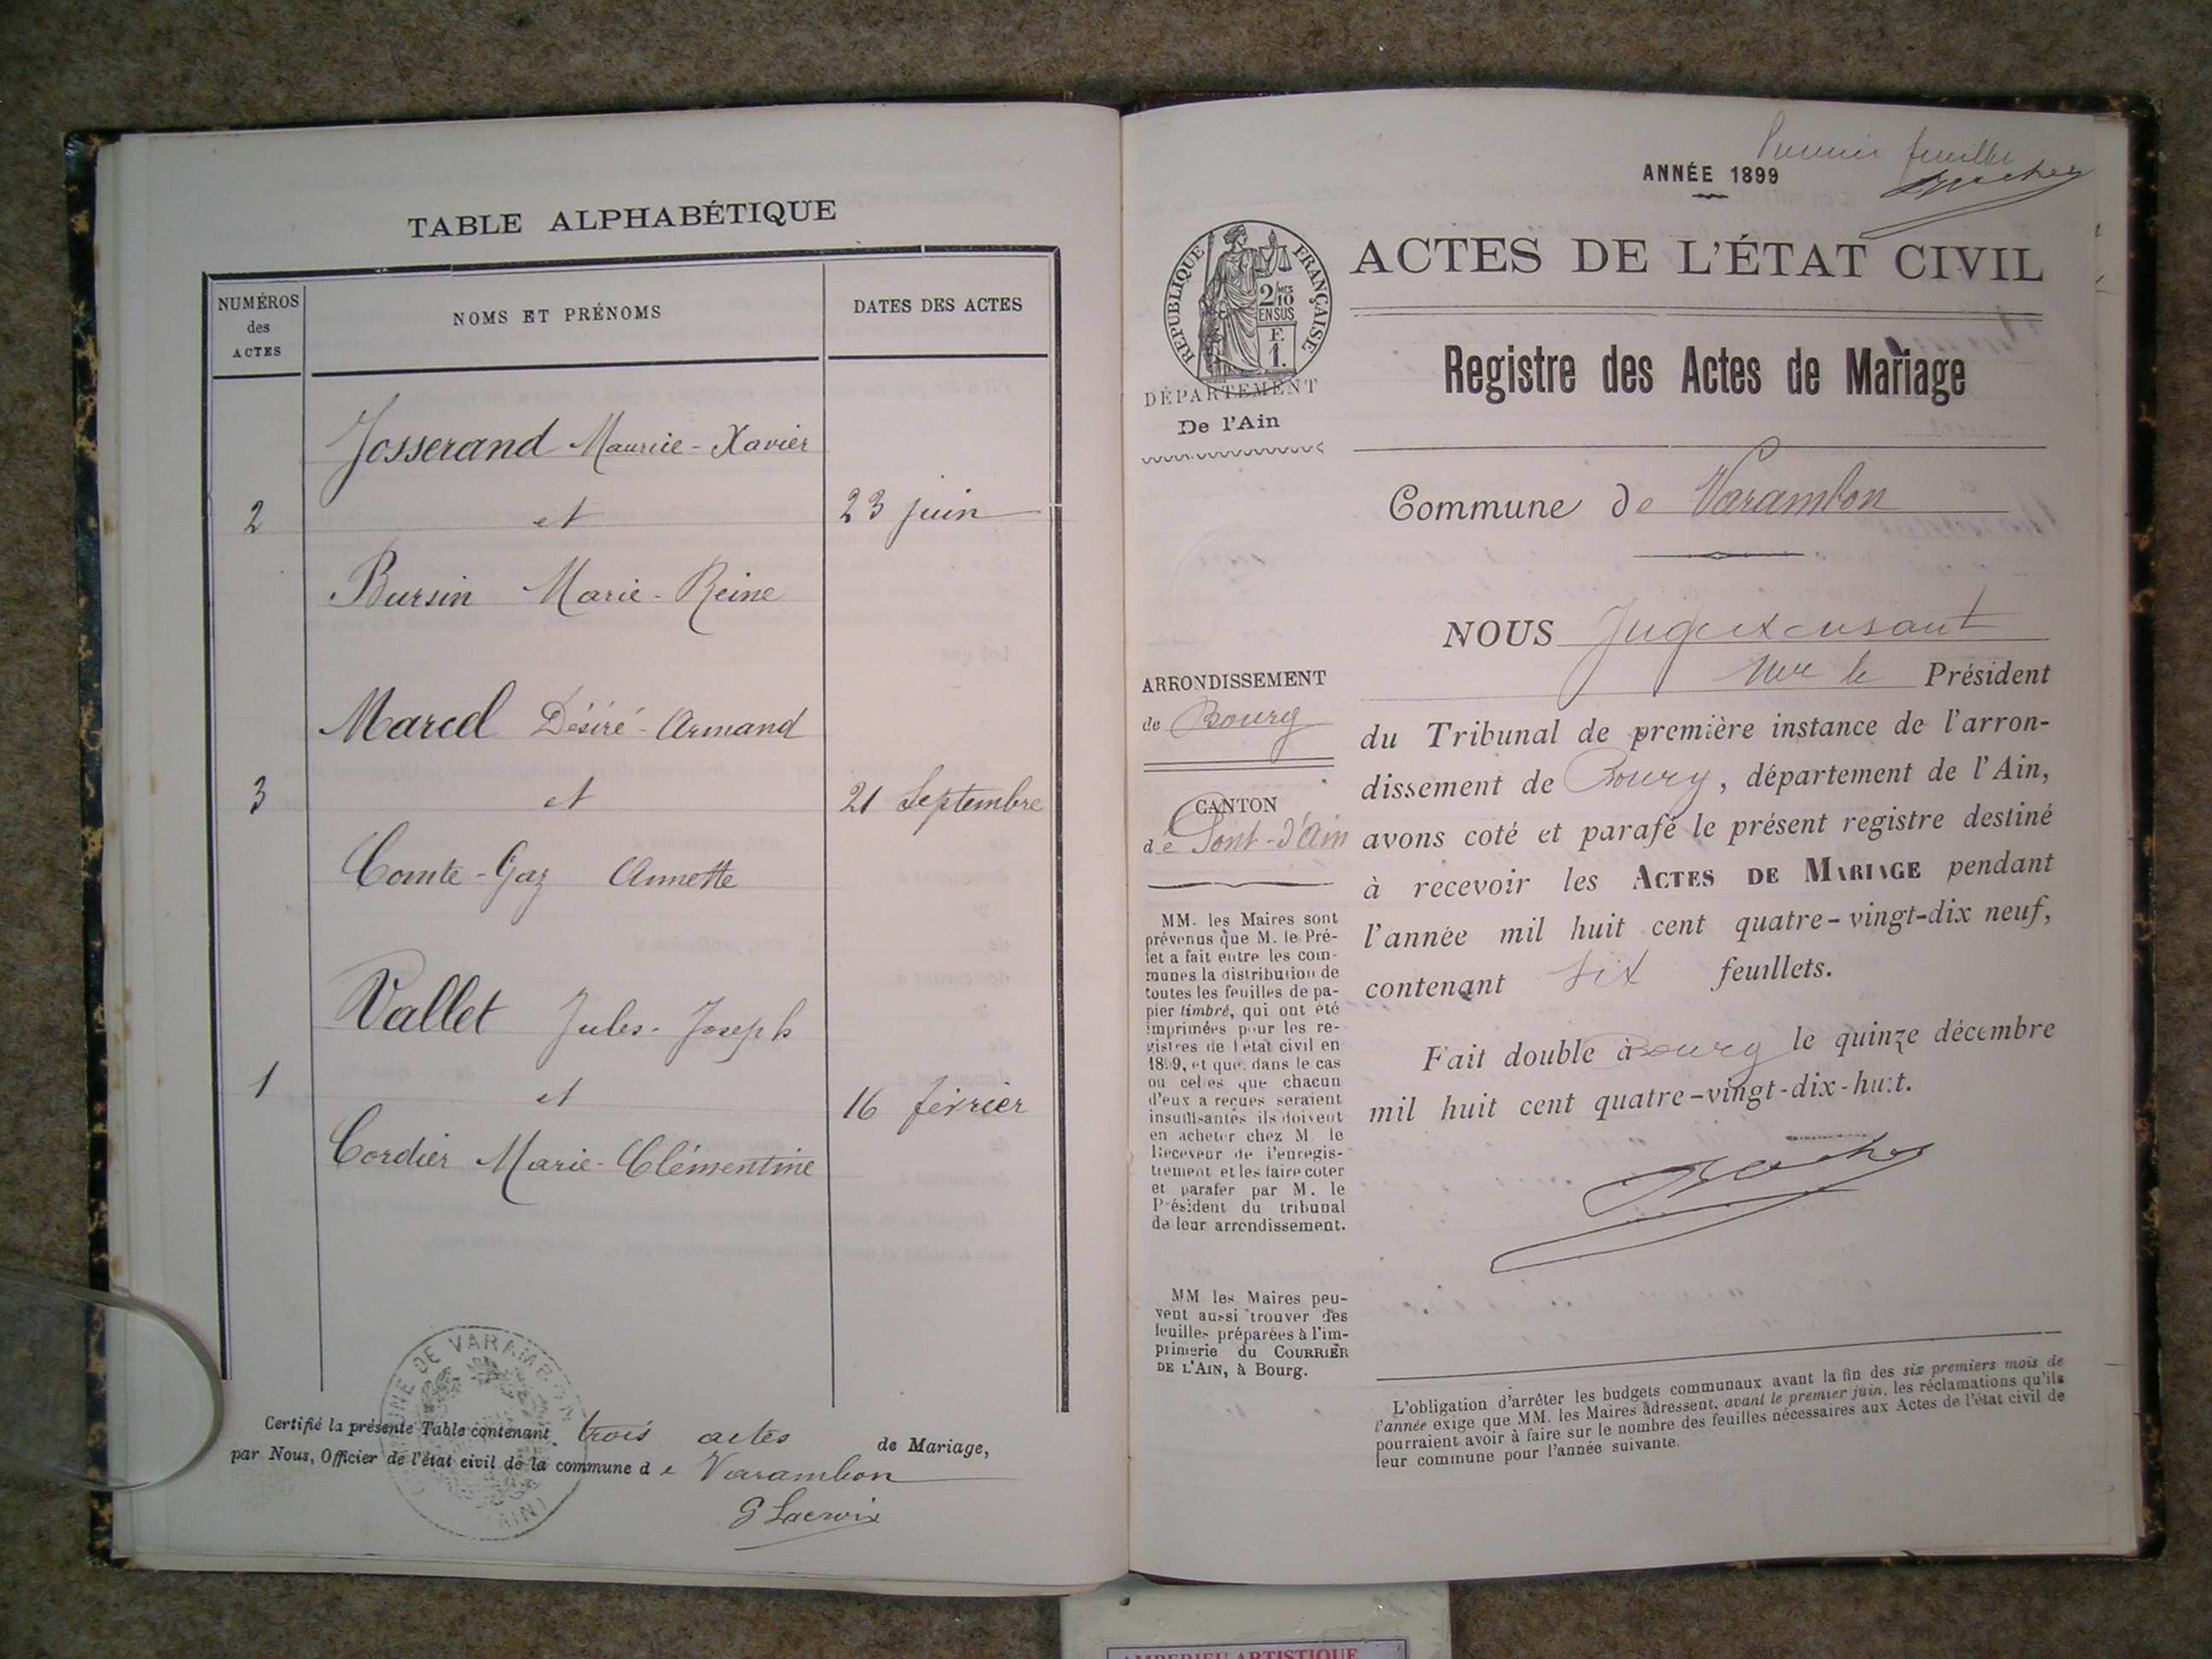 TABLE ALPHABÉTIQUE
NUMÉROS
des
ACTES
NOMS ET PRÉNOMS
DATES DES ACTES
Josserand Maurice-Xavier
2 et 23 juin
Bursin Marie-Reine
Marcel Désiré-Armand
3 et 21 Septembre
Comte-Gaz Annette
Vallet Jules-Joseph
1 et 16 février
Cordier Marie-Clémentine
COMMUNE DE VARAMBON
(AIN)
Certifié la présente Table contenant trois actes de Mariage,
par Nous, Officier de l'état civil de la commune de Varambon
G Lacroix
Premier feuillet
ANNÉE 1899
RÉPUBLIQUE FRANÇAISE
2/10 MES
EN SUS
F.
1.
ACTES DE L'ÉTAT CIVIL
Registre des Actes de Mariage
DÉPARTEMENT
De l'Ain
Commune de Varambon
ARRONDISSEMENT
de Bourg
CANTON
de Pont-d'Ain
MM. les Maires sont
prévenus que M. le Pré-
fet a fait entre les com-
munes la distribution de
toutes les feuilles de pa-
pier timbré, qui ont été
imprimées pour les re-
gistres de l'état civil en
1899, et que, dans le cas
où celles que chacun
d'eux a reçues seraient
insuffisantes ils doivent
en acheter chez M. le
Receveur de l'enregis-
trement et les faire coter
et parafer par M. le
Président du tribunal
de leur arrondissement.
MM les Maires peu-
vent aussi trouver des
feuilles préparées à l'im-
primerie du COURRIER
DE L'AIN, à Bourg.
NOUS Juge
le Président
du Tribunal de première instance de l'arron-
dissement de Bourg, département de l'Ain,
avons coté et parafé le présent registre destiné
à recevoir les ACTES DE MARIAGE pendant
l'année mil huit cent quatre-vingt-dix neuf,
contenant six feuillets.
Fait double à Bourg le quinze décembre
mil huit cent quatre-vingt-dix-huit.
L'obligation d'arrêter les budgets communaux avant la fin des six premiers mois de
l'année exige que MM. les Maires adressent, avant le premier juin, les réclamations qu'ils
pourraient avoir à faire sur le nombre des feuilles nécessaires aux Actes de l'état civil de
leur commune pour l'année suivante.
AMBERIEU ARTISTIQUE